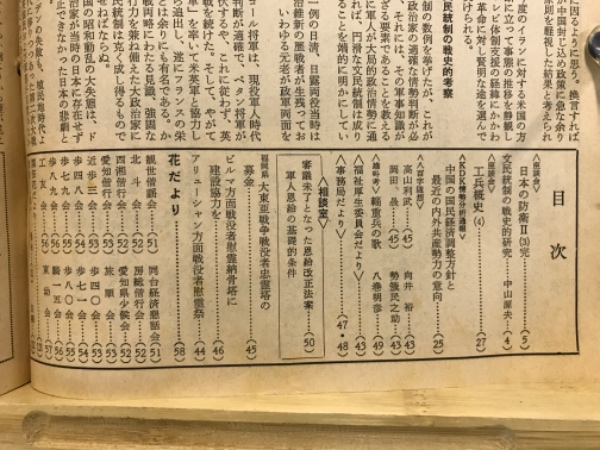 因るように思う。換言すれば
が中国封じ込め政策に急な余り
原則を軽視した結果と考えられ
度のイランに対する米国の方
に立って事態の推移を静観し
レビ体制支援の経緯にかかわ
革命に対し賢明な途を選んで
けられる。
民統制の戦史的考察
制の数例を挙げたが、これが
政治家の適確な情勢判断が必
、それには、その軍事知識が
ざる要素であることを教える
に軍人が大局的政治情勢に通
れば、円滑な文民統制は成り
ることを端的に明かにしてい
一例の日清、日露両役当時は
治維新の歴戦者が生残ってお
いわゆる元老が政軍両面を
コール将軍は、現役軍人時代
判断が適確で、ペタン将軍が
伏するや、これに従わず、英
戦を続けた。そして、やがて
軍」を率いて米英軍と協力し
ら追出し、遂にフランスの栄
とは余りにも有名である。か
戦両略にわたる見識、強固な
行力を兼ね備えた大政治家に
民統制は克く成し得るもので
せねばならぬ。
国の昭和動乱の大失態は、ド
治家が当時の日本に存在せず
止できなかった日本の悲劇と
目次
日本の防衛Ⅱ(3)完……(5)
文民統制の戦史的研究……中山源夫…(4)
工兵概史(4)……(27)
中国の国民経済調整方針と
最近の内外共産勢力の意向……(25)
高山利武…(45) 向井裕…(43)
岡田晟…(45) 勢馥民之助…(43)
輜重兵の歌……八巻明彦…(49)
<福祉厚生委員会だより>
<事務局だより>……(47・48)
<相談室>
審議未了となった恩給改正法案
軍人恩給の基礎的条件……(50)
福岡県 大東亜戦争戦没者忠霊塔の
募金……(45)
ビルマ方面戦没者慰霊納骨塔に
建設協力を……(46)
アリューシャン方面戦没者慰霊祭……(44)
花だより……(58)
観世偕謡会……(51) 同台経済懇話会(51)
北斗会……(52) 房総偕行会…(52)
西湘偕行会……(52) 愛知県少候会…(52)
愛知偕行会……(53) 旅順会……(53)
近歩三会……(53) 歩四〇会……(53)
歩四八会……(54) 歩七一会……(54)
歩七九会……(55) 歩八〇会……(55)